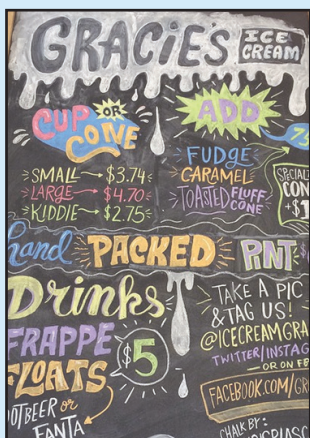 GRACIE'S
ICE
CREAM
CUP OR
CONE
SMALL → $3.74
LARGE → $4.70
KIDDIE → $2.75
ADD
FUDGE
CARAMEL
TOASTED FLUFF
CONE
75
SPECIAL
CON
+$1
hand PACKED PINT
Drinks
FRAPPE
FLOATS
$5
OTBEER or
FANTA
TAKE A PIC
& TAG US!
@ICECREAMGRA
TWITTER/INSTAG
—OR ON FB
FACEBOOK.COM/GR
CHALK BY: